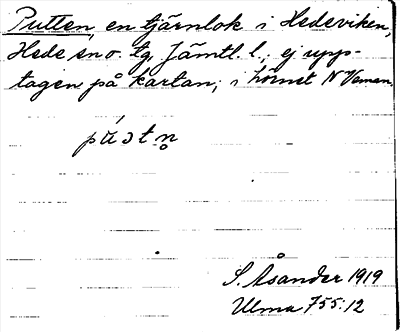 Putten, en tjärnlok i Hedeviken,
Hede sn o. tg Jämtl. l.; ej upp-
tagen på kartan; i hörnet N Veman.
pu̇ətn̥
S. Åsander 1919
Ulma 755:12